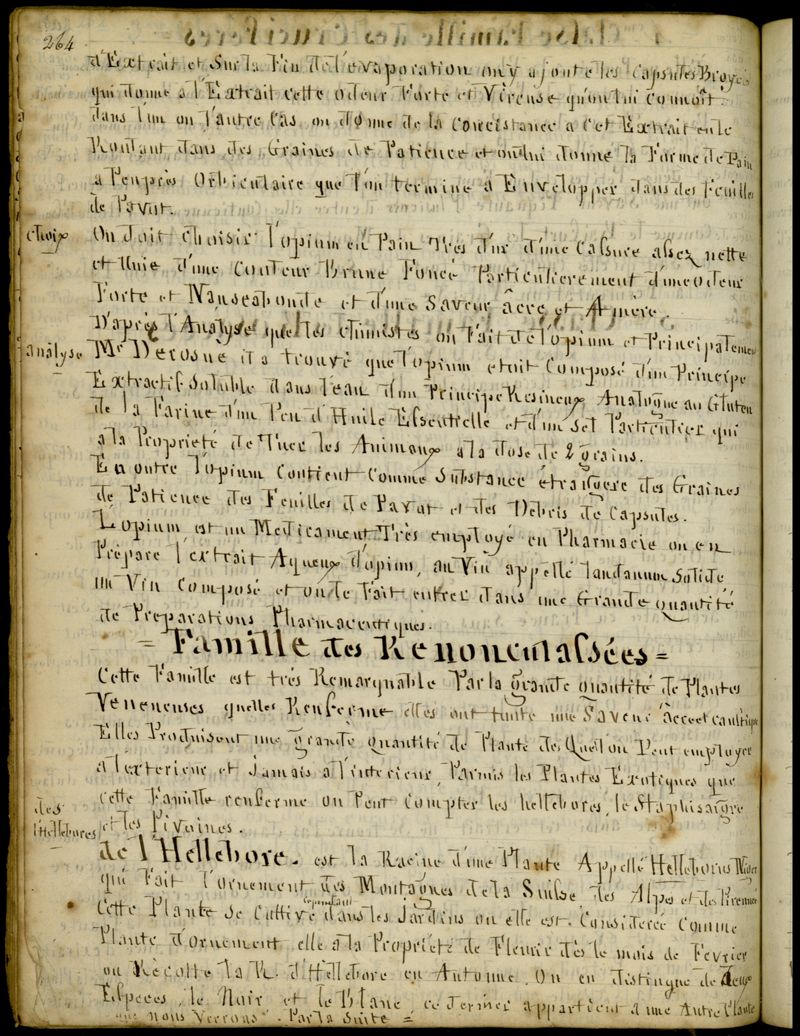 264
d'Extrait et Sur la Fin de l'evaporation on y ajoute les Capsules Broyés
qui donne a l'Extrait cette odeur Forte et Vireuse qu'on lui Connoît.
dans l'un ou l'autre Cas on donne de la Concistance a Cet Extrait en le
Roulant dans des Graines de Patience et on lui donne la Forme de Pain
a Peu près Orbiculaire que l'on termine a Envelopper dans des Feuilles
de Pavot.
choix
On doit choisir l'opium en Pain Tres dur d'une Cassure assez nette
et Unie d'une Couleur Brune Foncé Particulierement d'une odeur
Forte et Nauseabonde et d'une Saveur âcre et Amère.
D'après l'Analyse que les chimistes on Fait de l'opium et Principalement
analyse
Mr Derosne il a trouvé que l'opium etoit Composé d'un Principe
Extractif Soluble dans l'eau d'un Principe Resineux Analogue au Gluten
de la Farine d'un Peu d'Huile Essentielle et d'un Sel Particulier qui
a la Propriété de Tuer les Animaux a la dose de 2 grains.
En outre l'opium Contient Comme Substance étrangere des Graines
de Patience des Feuilles de Pavot et des Debris de Capsules.
L'opium est un Medicament Très employé en Pharmacie on en
Prepare l'extrait Aqueux d'opium, au Vin appellé laudanum Solide
un Vin Composé et on le Fait entrer dans une Grande quantité
de Preparations Pharmaceutiques.
= Famille des Renonculassées =
Cette Famille est très Remarquable Par la grande quantité de Plantes
Veneneuses quelles Renferme elles ont toute une Saveur âcre et caustique
Elles Produisent une grande quantité de Plante desquell on Peut employer
a l'exterieur et Jamais a l'interieur, Parmis les Plantes Exotiques que
cette Famille renferme on Peut Compter les hellebores, le Staphisaigre
des
Hellebores
et les Pivoines.
de l'Hellebore. est la Racine d'une Plante Appellé Helleborus Niger
qui Fait l'ornement des Montagnes de la Suisse des Alpes et des
Cette Plante Se Cultive cependant dans les Jardins ou elle est Considerée Comme
Plante d'Ornement elle a la Propriété de Fleurir dès le mois de Fevrier
on Recolte la R. d'Hellebore en Automne. On en distingue de deux
Especes, le Noir et le Blanc, ce dernier appartient a une Autre Plante
que nous Verrons Par la Suite =